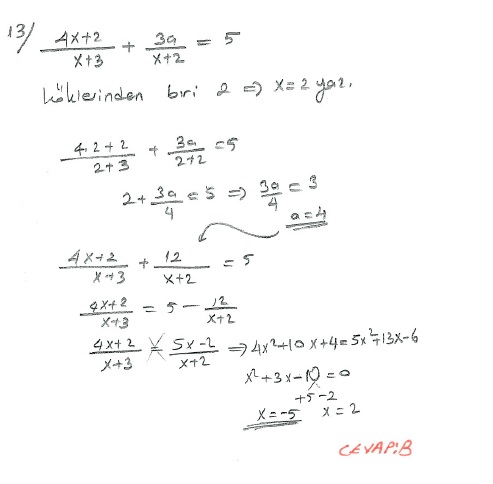 13) (4x+2)/(x+3) + 3a/(x+2) = 5
köklerinden biri 2 ⇒ x=2 yaz.
(4.2+2)/(2+3) + 3a/(2+2) = 5
2 + 3a/4 = 5 ⇒ 3a/4 = 3
a=4
(4x+2)/(x+3) + 12/(x+2) = 5
(4x+2)/(x+3) = 5 − 12/(x+2)
(4x+2)/(x+3) = (5x−2)/(x+2) ⇒ 4x²+10x+4 = 5x²+13x−6
x²+3x−10 = 0
+5 −2
x=−5 x=2
CEVAP:B